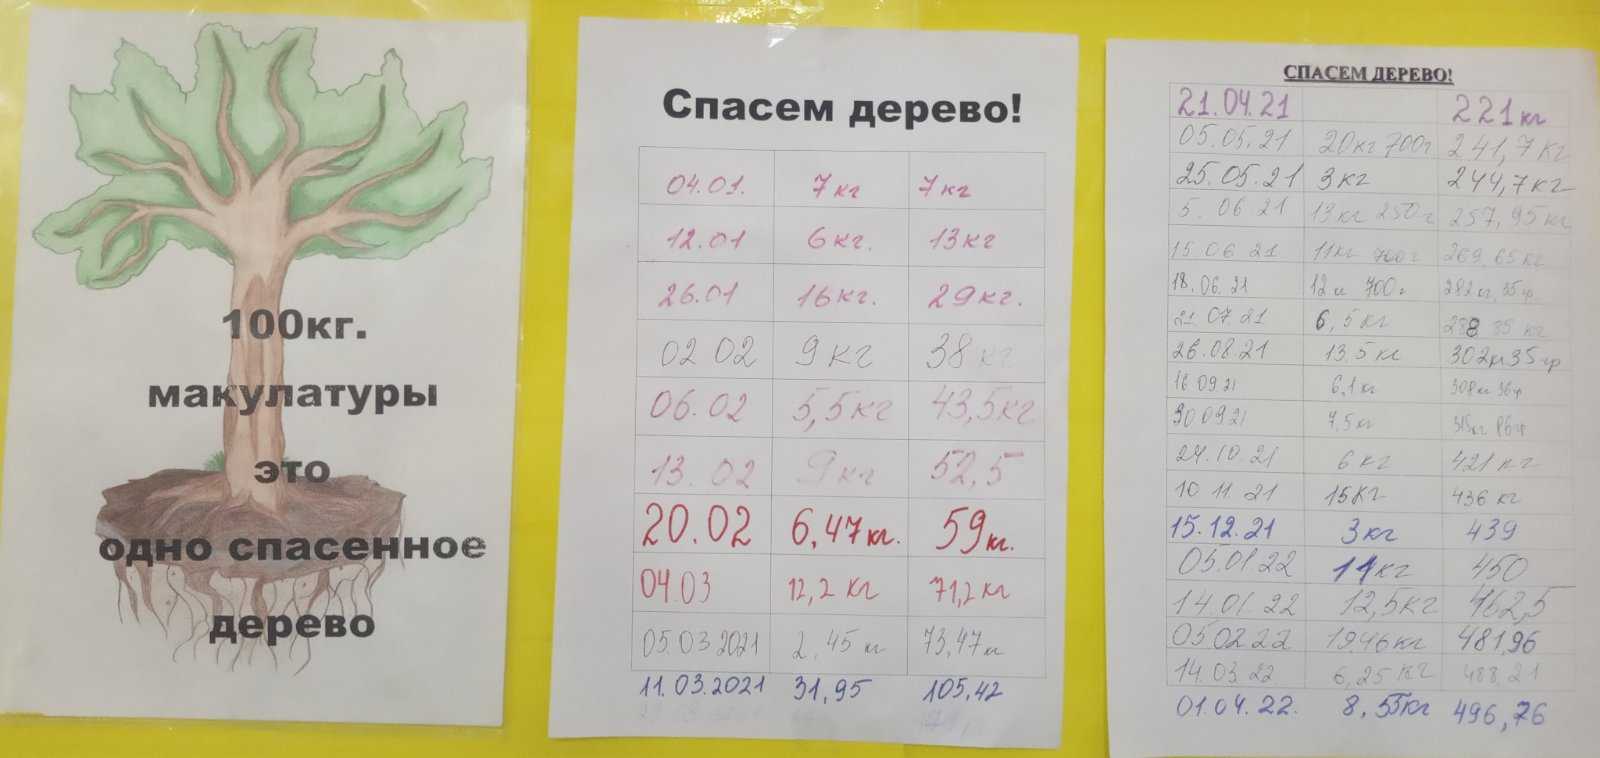 100кг.
макулатуры
это
одно спасенное
дерево
Спасем дерево!
04.01. 7 кг 7 кг
12.01 6 кг. 13 кг
26.01 16 кг. 29 кг.
02 02 9 кг 38 кг
06.02 5,5 кг 43,5 кг
13.02 9 кг 52,5
20.02 6,47 кг. 59 кг.
04.03 12,2 кг 71,2 кг
05.03 2021 2,45 кг 73,47 кг
11.03.2021 31,95 105,42
СПАСЕМ ДЕРЕВО!
21.04.21 221 кг
05.05.21 20 кг 700 г 241,7 кг
25.05.21 3 кг 244,7 кг
5. 06 21 13 кг 250 г 257,95 кг
15 06 21 11 кг 700 г 269,65 кг
18.06.21 12 700 г 282 кг, 35 гр
21.07.21 6,5 кг 288 85 кг
26.08.21 13,5 кг 302 кг 35 гр
16 09 21 6,1 кг 308 кг 36 гр
30 09 21 7,5 кг 315 кг 86 гр
24.10.21 6 кг 421 кг
10 11. 21 15 кг 436 кг
15.12.21 3 кг 439
05.01.22 11 кг 450
14.01.22 12,5 кг 462,5
05.02 22 19.46 кг 481,96
14.03.22 6,25 кг 488,21
01.04.22. 8,55 кг 496,76